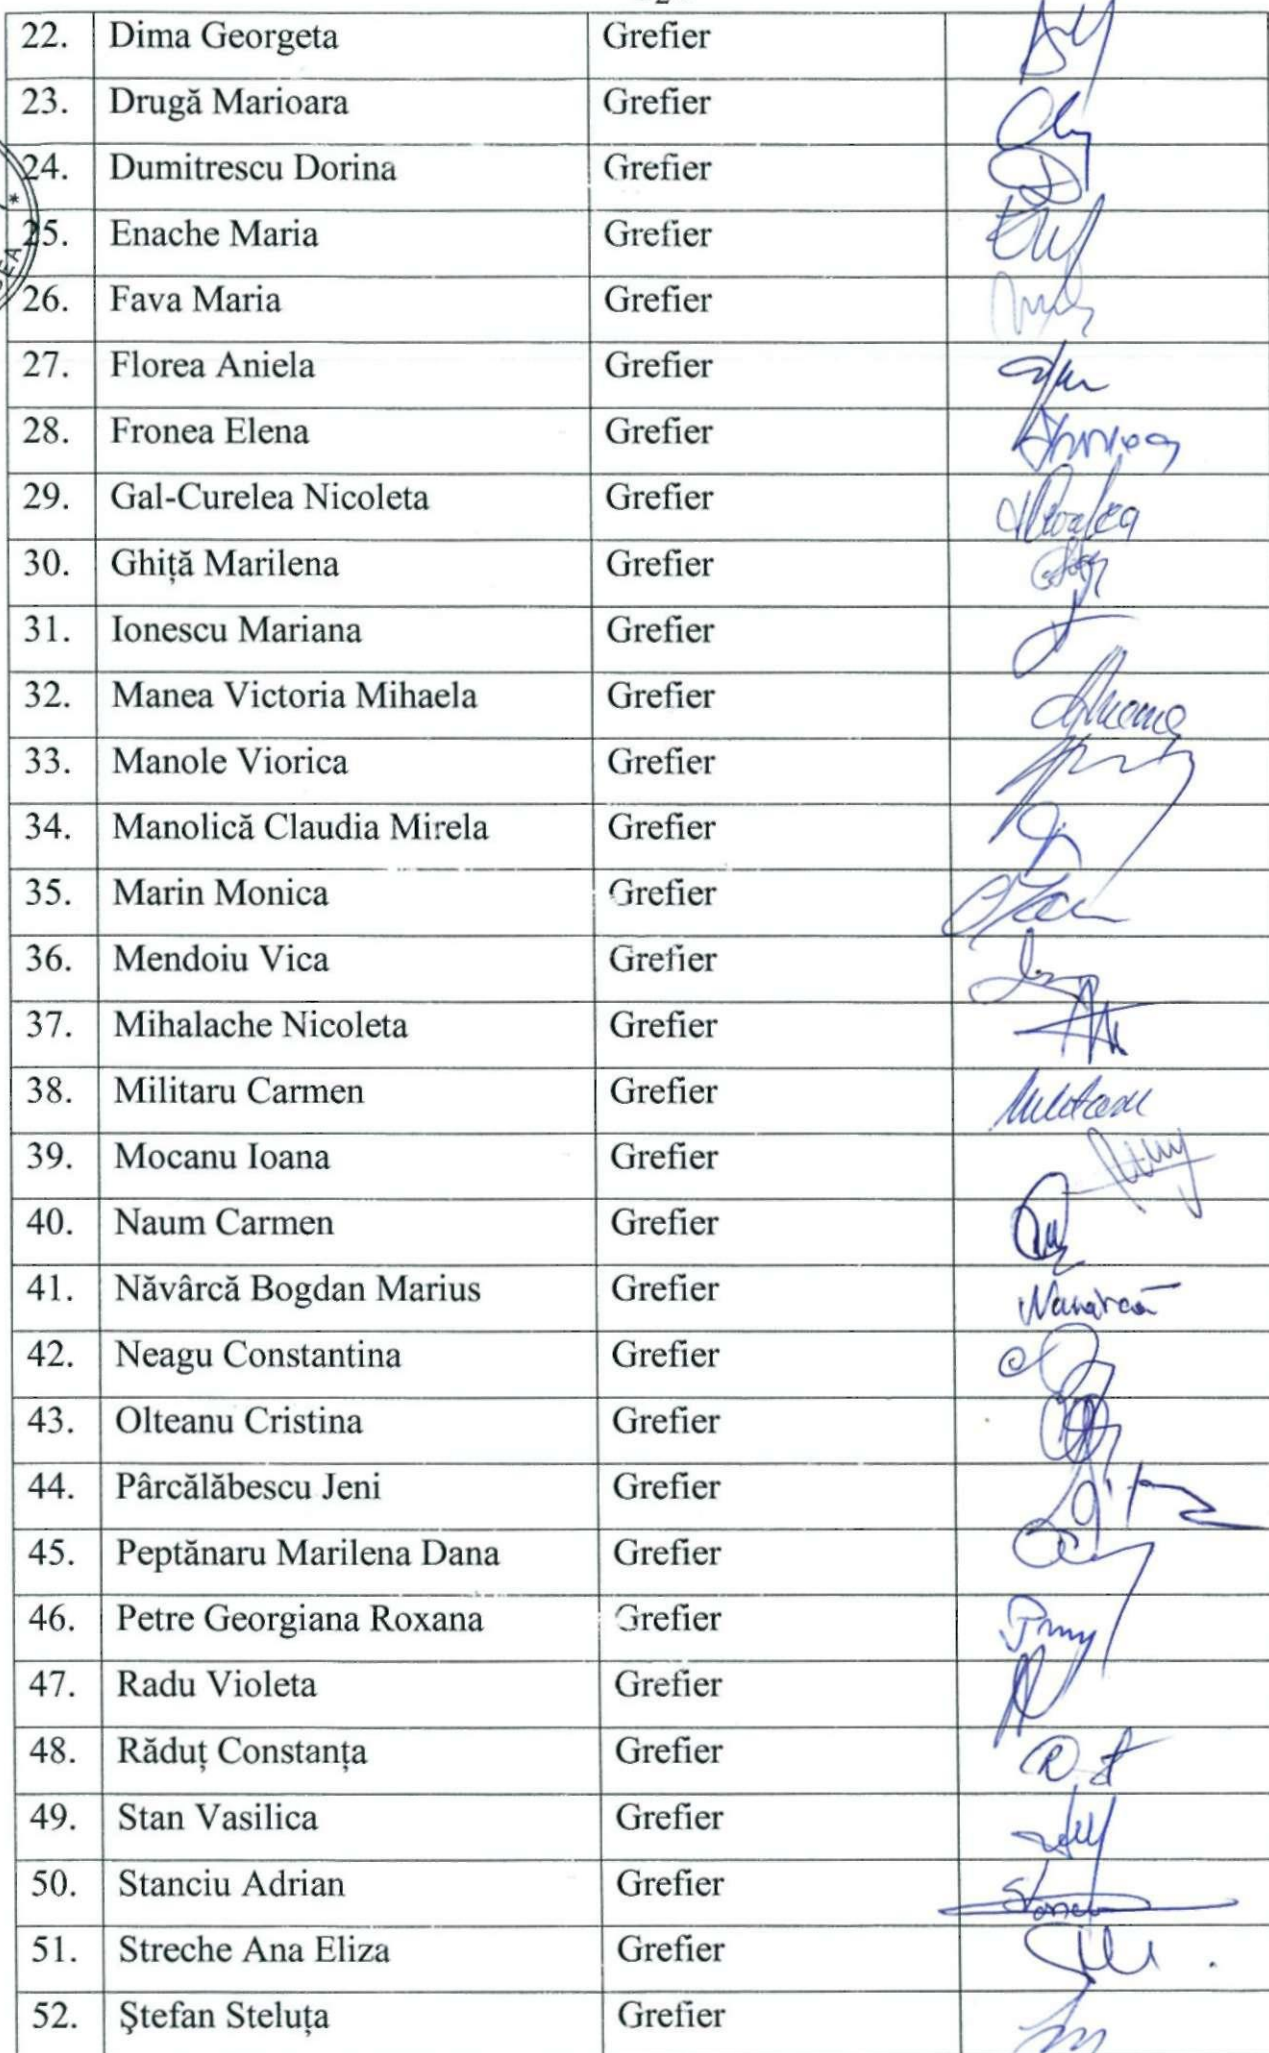 2
22. Dima Georgeta Grefier
23. Drugă Marioara Grefier
24. Dumitrescu Dorina Grefier
25. Enache Maria Grefier
26. Fava Maria Grefier
27. Florea Aniela Grefier
28. Fronea Elena Grefier
29. Gal-Curelea Nicoleta Grefier
30. Ghiță Marilena Grefier
31. Ionescu Mariana Grefier
32. Manea Victoria Mihaela Grefier
33. Manole Viorica Grefier
34. Manolică Claudia Mirela Grefier
35. Marin Monica Grefier
36. Mendoiu Vica Grefier
37. Mihalache Nicoleta Grefier
38. Militaru Carmen Grefier
39. Mocanu Ioana Grefier
40. Naum Carmen Grefier
41. Năvârcă Bogdan Marius Grefier
42. Neagu Constantina Grefier
43. Olteanu Cristina Grefier
44. Pârcălăbescu Jeni Grefier
45. Peptănaru Marilena Dana Grefier
46. Petre Georgiana Roxana Grefier
47. Radu Violeta Grefier
48. Răduț Constanța Grefier
49. Stan Vasilica Grefier
50. Stanciu Adrian Grefier
51. Streche Ana Eliza Grefier
52. Ştefan Steluța Grefier